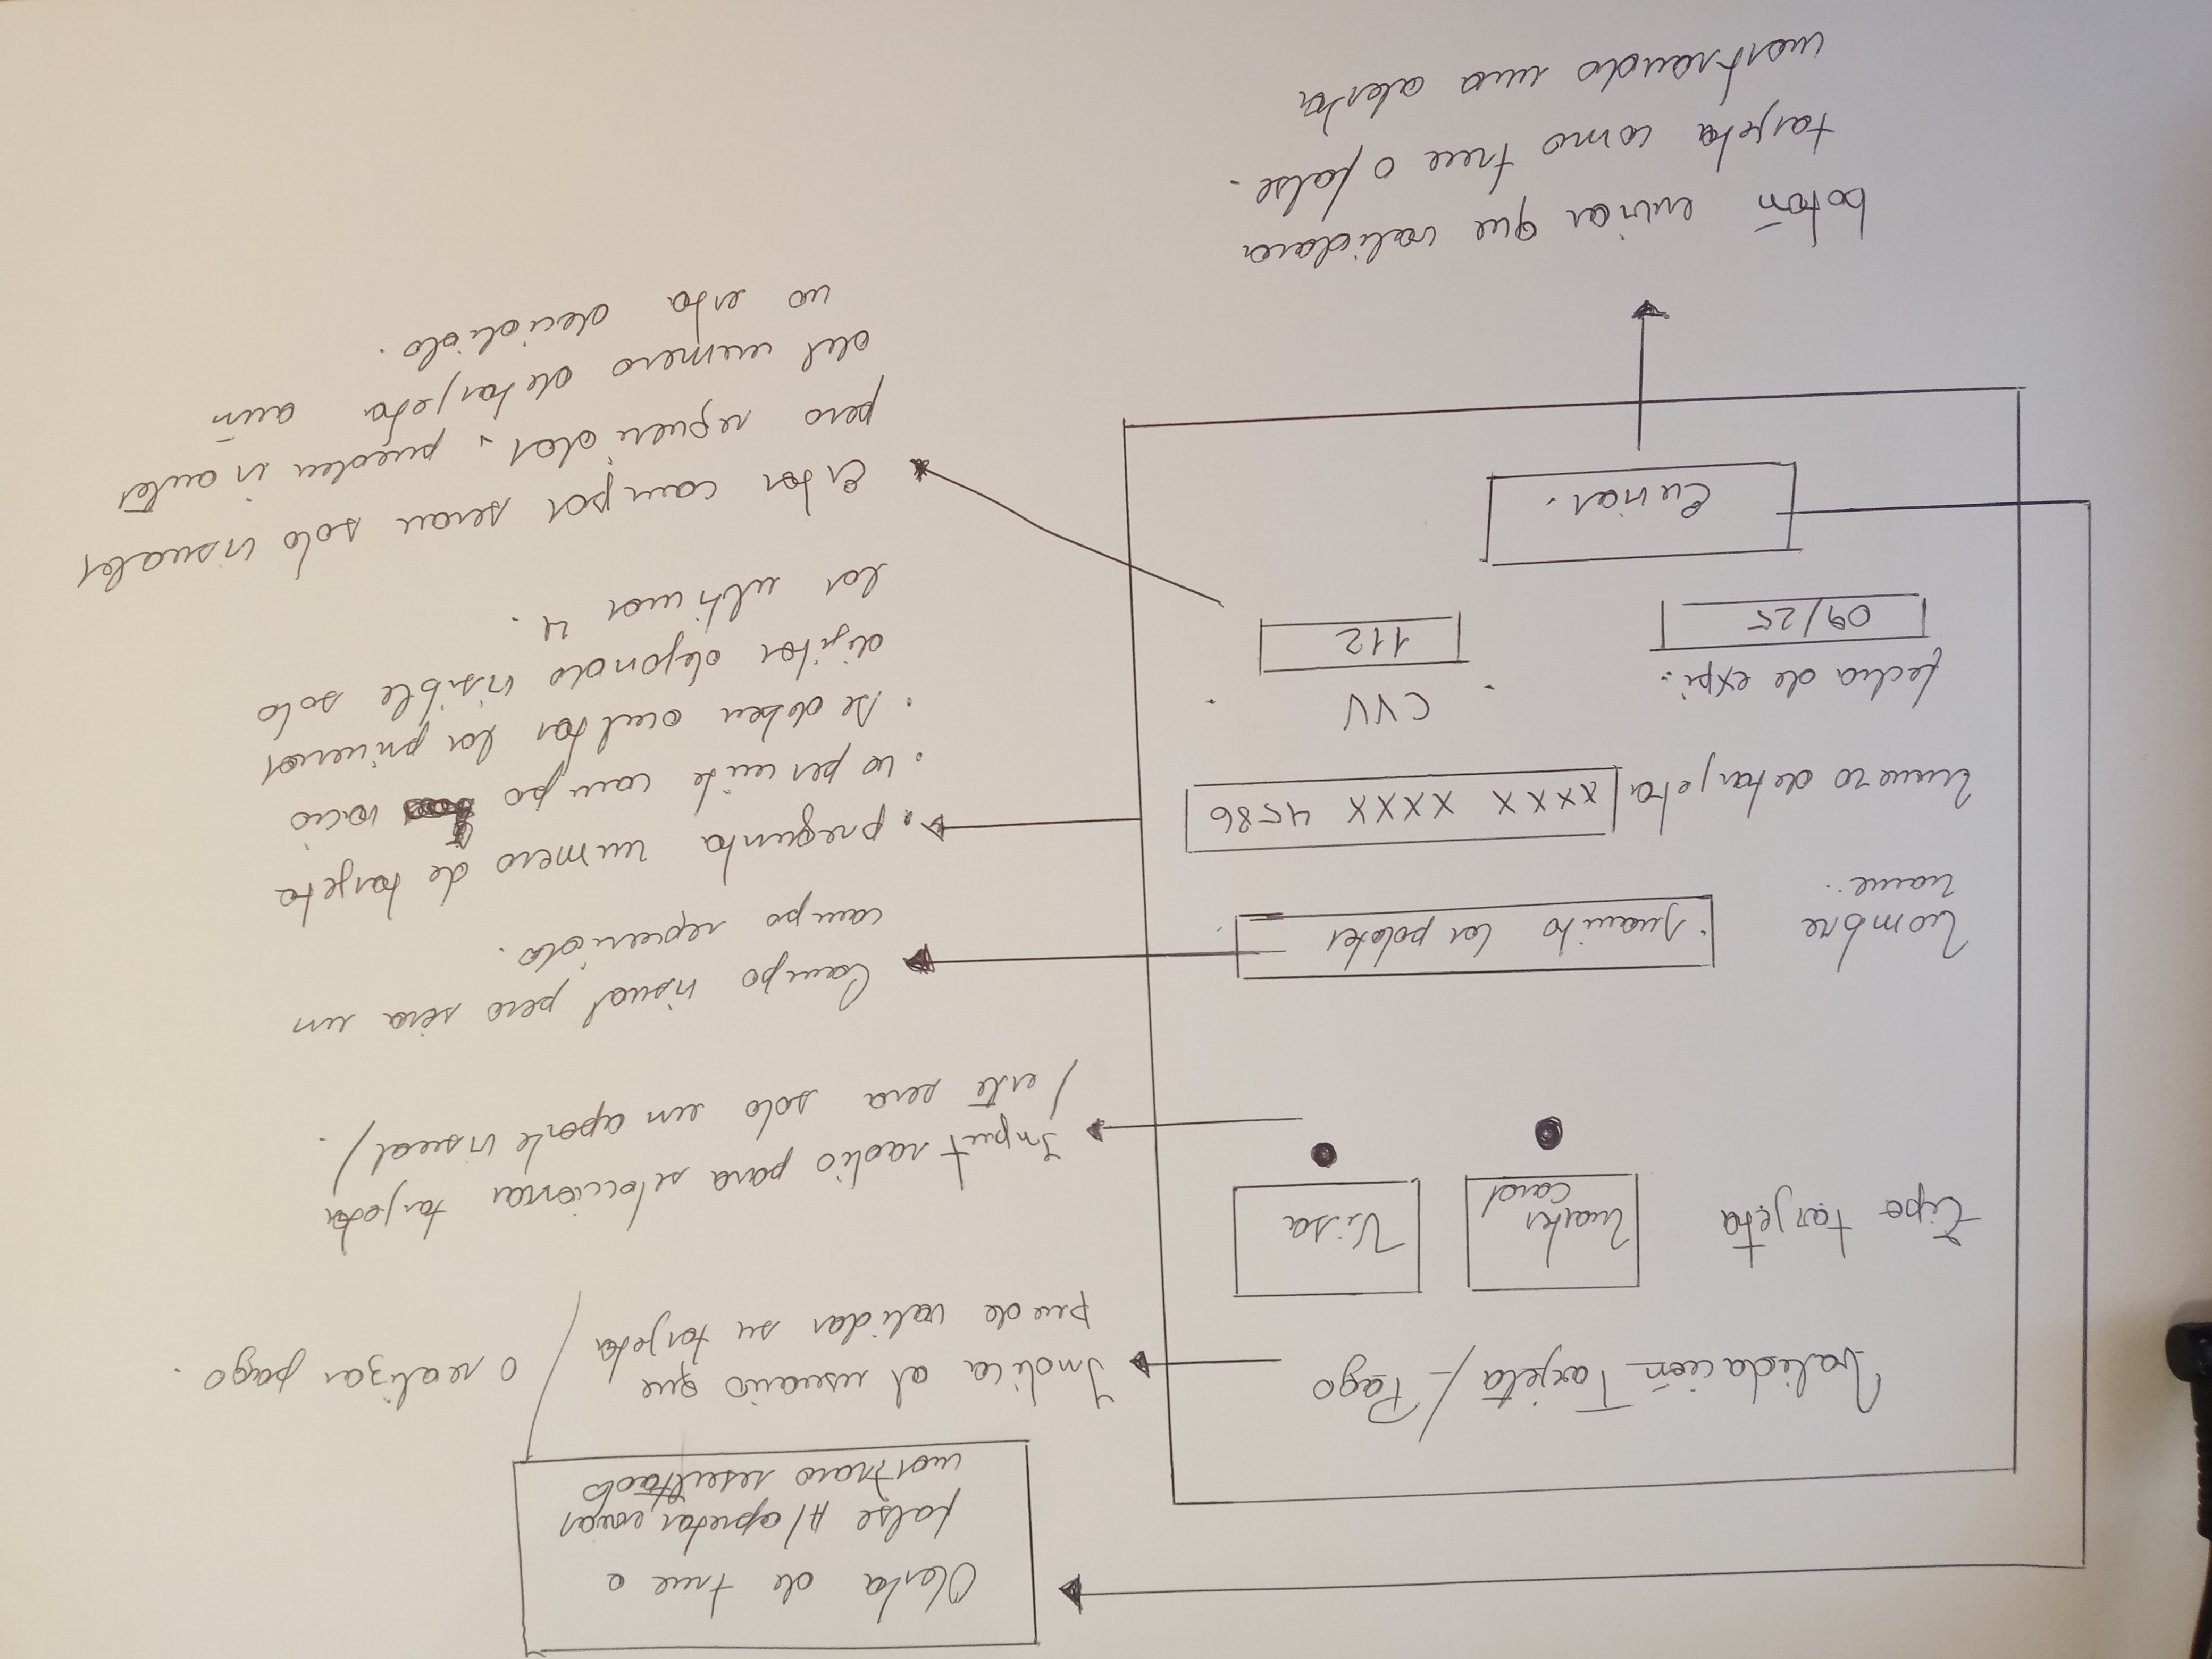 Alerta de true o
false Al apretar enviar
mostrara resultado
Validación Tarjeta / Pago
Indica al usuario que
puede validar su tarjeta / o realizar pago.
Tipo tarjeta
Master
card
Visa
Input radio para seleccionar tarjeta
/ este sera solo un aporte visual /.
Nombre
name:
Juanito los palotes
Campo visual pero sera un
campo requerido.
Numero de tarjeta
XXXX XXXX 4586
. pregunta numero de tarjeta
. no permite campo vacio
. se deben ocultar los primeros
digitos dejando visible solo
los ultimos 4.
fecha de expi.
CVV
09/25
112
Enviar.
Estos campos seran solo visuales
pero requeridos, pueden ir antes
del numero de tarjeta aún
no esta decidido.
botón enviar que validara
tarjeta como true o false.
mostrando una alerta